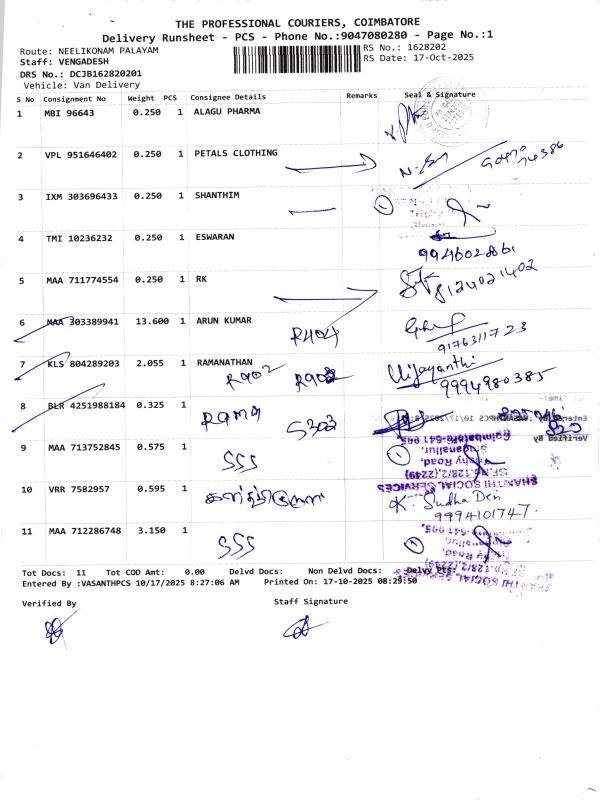 THE PROFESSIONAL COURIERS, COIMBATORE
Delivery Runsheet - PCS - Phone No.:9047080280 - Page No.:1
Route: NEELIKONAM PALAYAM
RS No.: 1628202
Staff: VENGADESH
RS Date: 17-Oct-2025
DRS No.: DCJB162820201
Vehicle: Van Delivery
S No Consignment No Weight PCS Consignee Details Remarks Seal & Signature
1 MBI 96643 0.250 1 ALAGU PHARMA
2 VPL 951646402 0.250 1 PETALS CLOTHING
3 IXM 303696433 0.250 1 SHANTHIM
4 TMI 10236232 0.250 1 ESWARAN
5 MAA 711774554 0.250 1 RK
8124021402
6 MAA 303389941 13.600 1 ARUN KUMAR
R404
9176311723
7 KLS 804289203 2.055 1 RAMANATHAN
R902
Vijayanthi
9994980385
8 BLR 4251988184 0.325 1
S303
9 MAA 713752845 0.575 1
SSS
Coimbatore-641 005.
Singanallur,
Trichy Road,
SF.No.128/2,(2249)
SHANTHI SOCIAL SERVICES
10 VRR 7582957 0.595 1
K. Sudha Devi
9994101747.
11 MAA 712286748 3.150 1
SSS
Tot Docs: 11 Tot COD Amt: 0.00 Delvd Docs: Non Delvd Docs: Delvy Pts:
Entered By :VASANTHPCS 10/17/2025 8:27:06 AM Printed On: 17-10-2025 08:29:50
Verified By Staff Signature